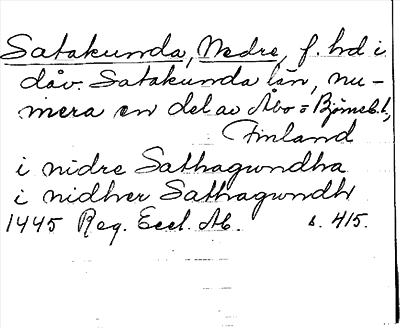 Satakunda, Nedre, f. hd i
dåv. Satakunda län, nu-
mera en del av Åbo = Björneb. l.,
Finland
i nidre Sathagwndha
i nidher Sathagwndh
1445 Reg. Eccl. Ab. s. 415.